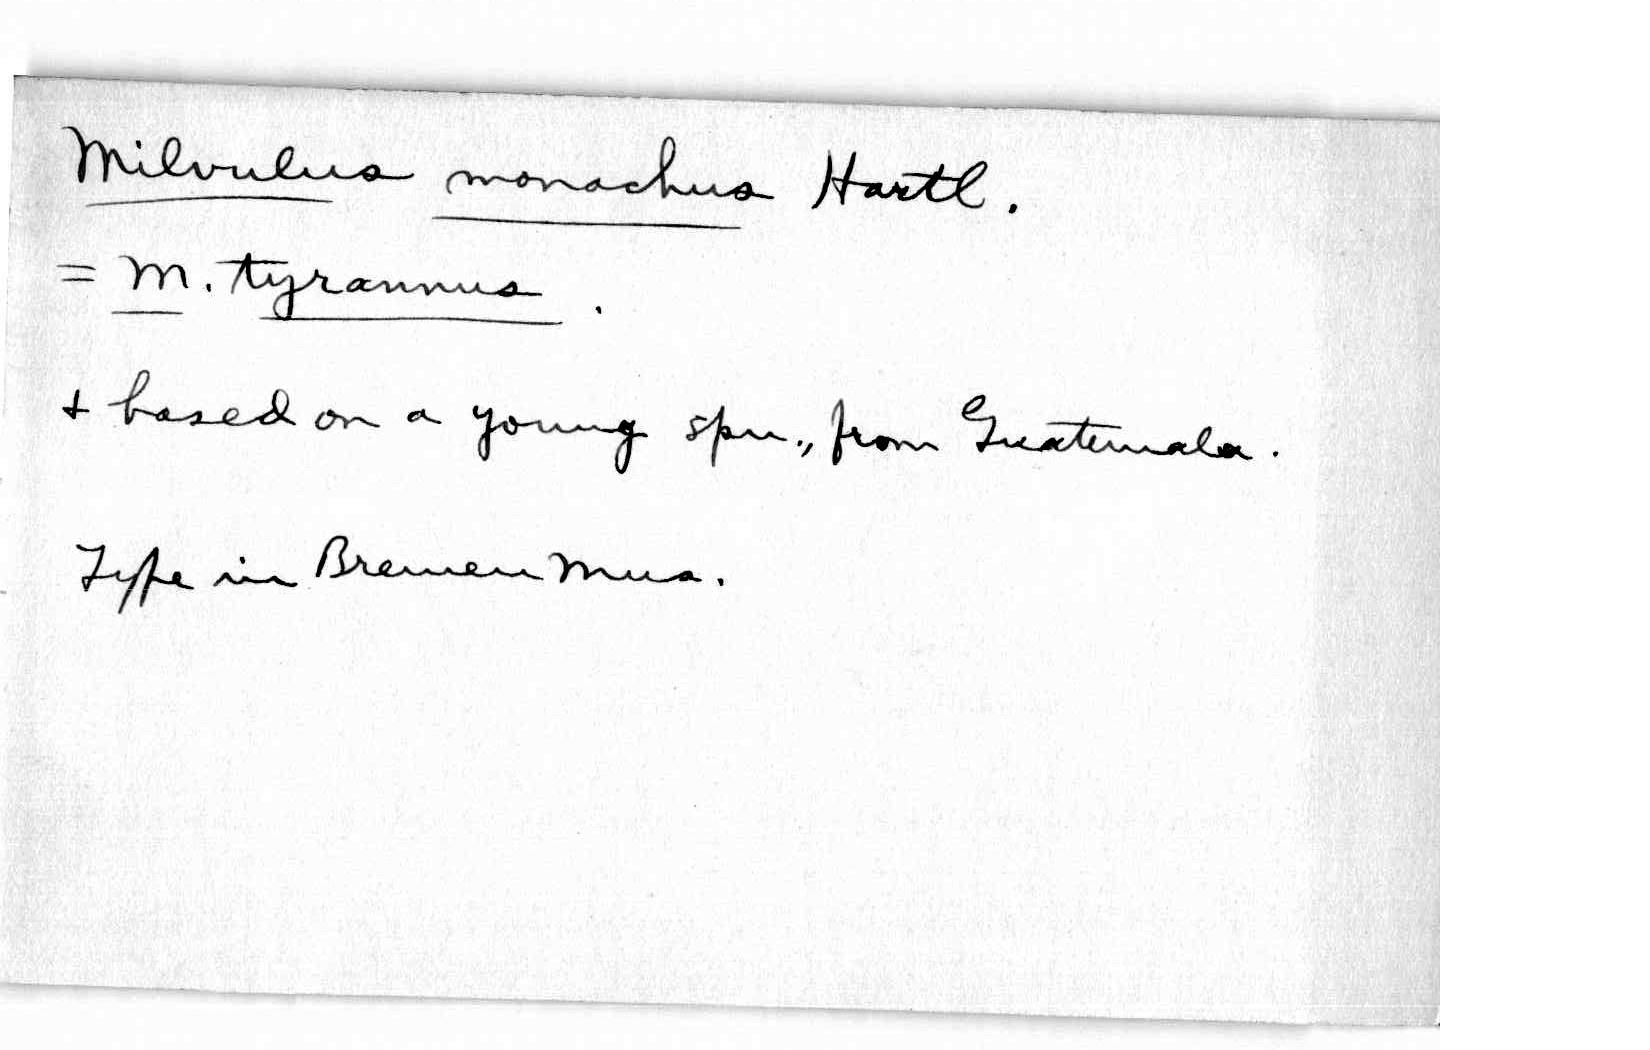 Milvulus monachus Hartl.
= M. tyrannus.
+ based on a young spn., from Guatemala.
Type in Bremen Mus.